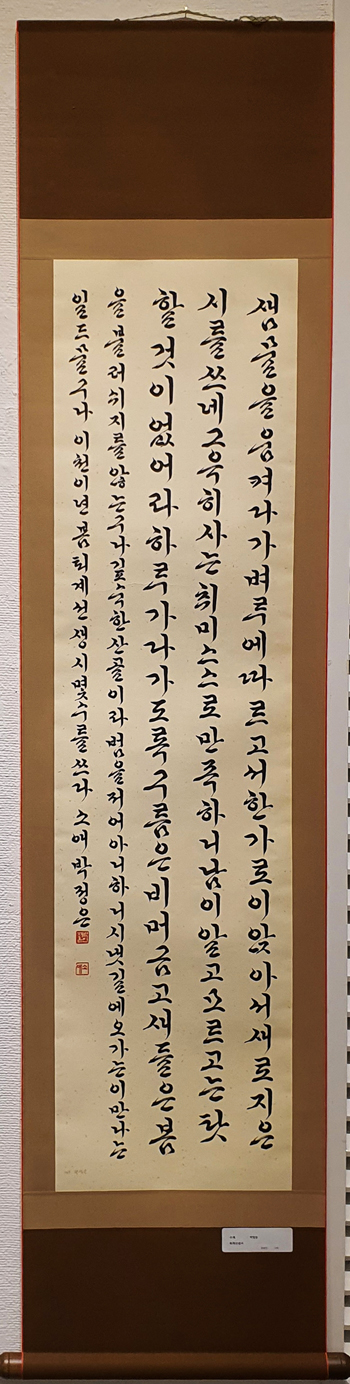 샘물을움켜다가벼루에따르고서한가로이앉아서새로지은
시를쓰네그윽히사는취미스스로만족하니남이알고모르고는탓
할것이없어라하루가다가도록구름은비머금고새들은봄
을불러쉬지를않는구나깊숙한산골이라범을저어아니하니시냇길에오가는이만나는
일드물구나이천이년봄퇴계선생시몇수를쓰다소애박정은